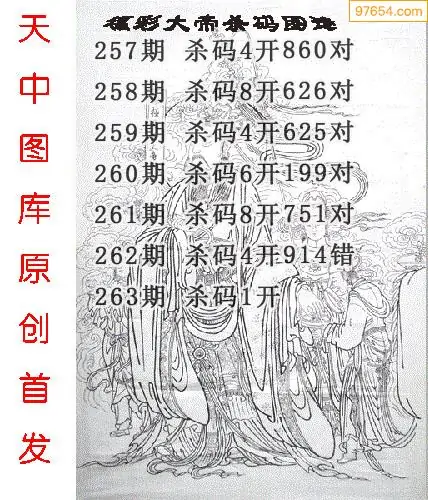 97654.com
福彩大帝杀码图迷
257期 杀码4开860对
258期 杀码8开626对
259期 杀码4开625对
260期 杀码6开199对
261期 杀码8开751对
262期 杀码4开914错
263期 杀码1开
天中图库原创首发